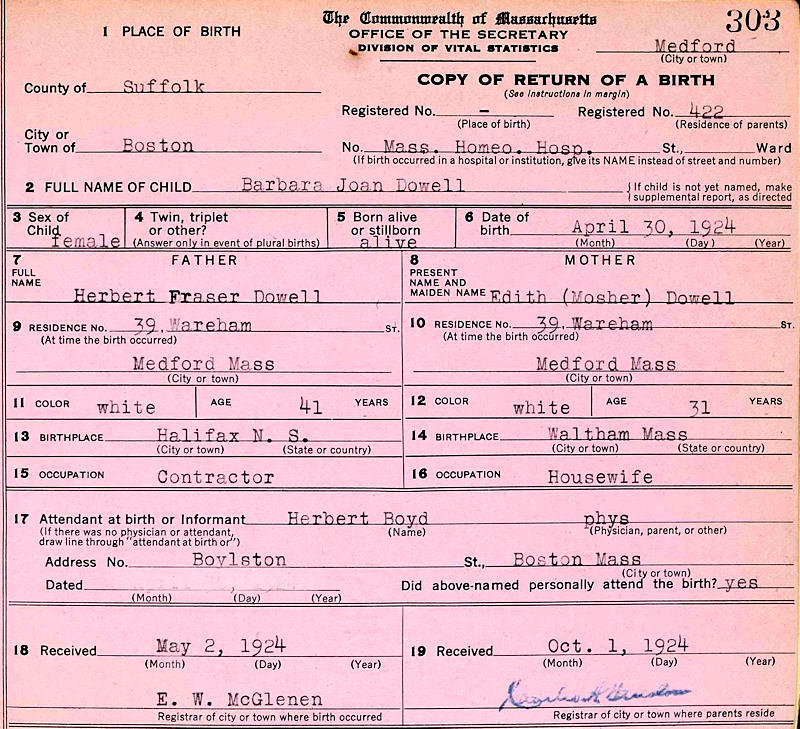 303
The Commonwealth of Massachusetts
OFFICE OF THE SECRETARY
DIVISION OF VITAL STATISTICS
1 PLACE OF BIRTH
Medford
(City or town)
COPY OF RETURN OF A BIRTH
(See instructions in margin)
County of Suffolk
Registered No. – Registered No. 422
(Place of birth) (Residence of parents)
City or
Town of Boston No. Mass. Homeo. Hosp. St., Ward
(If birth occurred in a hospital or institution, give its NAME instead of street and number)
2 FULL NAME OF CHILD Barbara Joan Dowell { If child is not yet named, make
supplemental report, as directed
3 Sex of
Child
female
4 Twin, triplet
or other?
(Answer only in event of plural births)
5 Born alive
or stillborn
alive
6 Date of
birth April 30, 1924
(Month) (Day) (Year)
7 FATHER
FULL
NAME
Herbert Fraser Dowell
8 MOTHER
PRESENT
NAME AND
MAIDEN NAME Edith (Mosher) Dowell
9 RESIDENCE No. 39, Wareham ST.
(At time the birth occurred)
Medford Mass
(City or town)
10 RESIDENCE No. 39, Wareham ST.
(At time the birth occurred)
Medford Mass
(City or town)
11 COLOR white AGE 41 YEARS
12 COLOR white AGE 31 YEARS
13 BIRTHPLACE Halifax N. S.
(City or town) (State or country)
14 BIRTHPLACE Waltham Mass
(City or town) (State or country)
15 OCCUPATION Contractor
16 OCCUPATION Housewife
17 Attendant at birth or Informant Herbert Boyd phys
(If there was no physician or attendant,
draw line through "attendant at birth or")
(Name) (Physician, parent, or other)
Address No. Boylston St., Boston Mass
(City or town)
Dated
(Month) (Day) (Year)
Did above-named personally attend the birth? yes
18 Received May 2, 1924
(Month) (Day) (Year)
E. W. McGlenen
Registrar of city or town where birth occurred
19 Received Oct. 1, 1924
(Month) (Day) (Year)
Registrar of city or town where parents reside